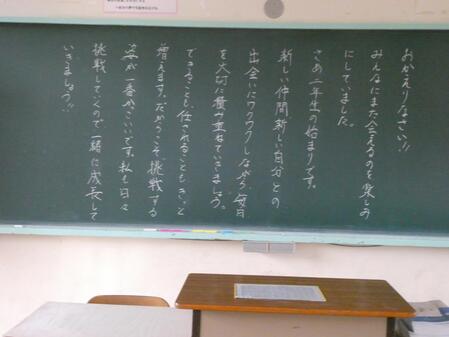 おかえりなさい!!
みんなにまた会えるのを楽しみ
にしていました。
さぁ二年生の始まりです。
新しい仲間、新しい自分との
出会いにワクワクしながら毎日
を大切に積み重ねていきましょう。
できることも、任されることもきっと
増えます。だからこそ、挑戦する
姿が一番かっこいいです。私も日々
挑戦していくので一緒に成長して
いきましょう!!